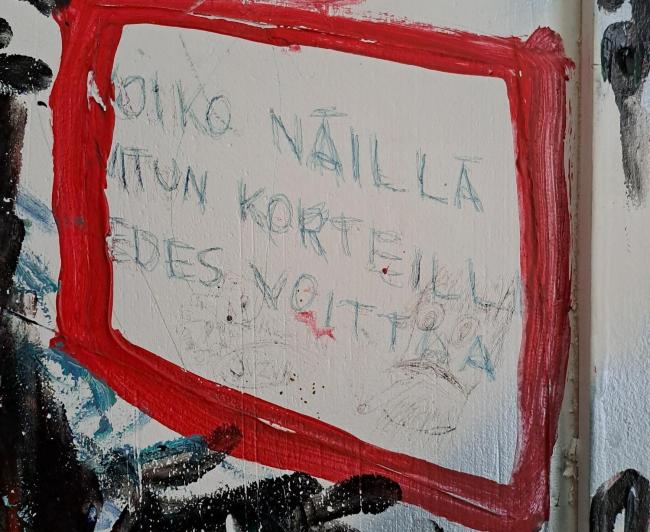 VOIKO NÄILLÄ
VITUN KORTEILLA
EDES VOITTAA